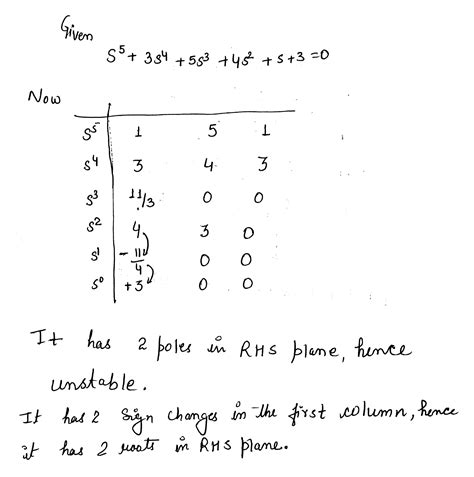 Given
S⁵ + 3s⁴ + 5s³ + 4s² + s + 3 = 0
Now
S⁵ 1 5 1
s⁴ 3 4 3
s³ 11/3 0 0
s² 4 3 0
s¹ -11/4 0 0
s⁰ +3 0 0
It has 2 poles in RHS plane, hence
unstable.
It has 2 sign changes in the first column, hence
it has 2 roots in RHS plane.